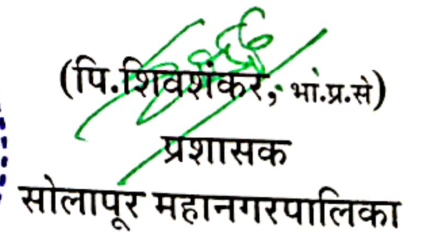 (पि.शिवशंकर, भा.प्र.से)
प्रशासक
सोलापूर महानगरपालिका